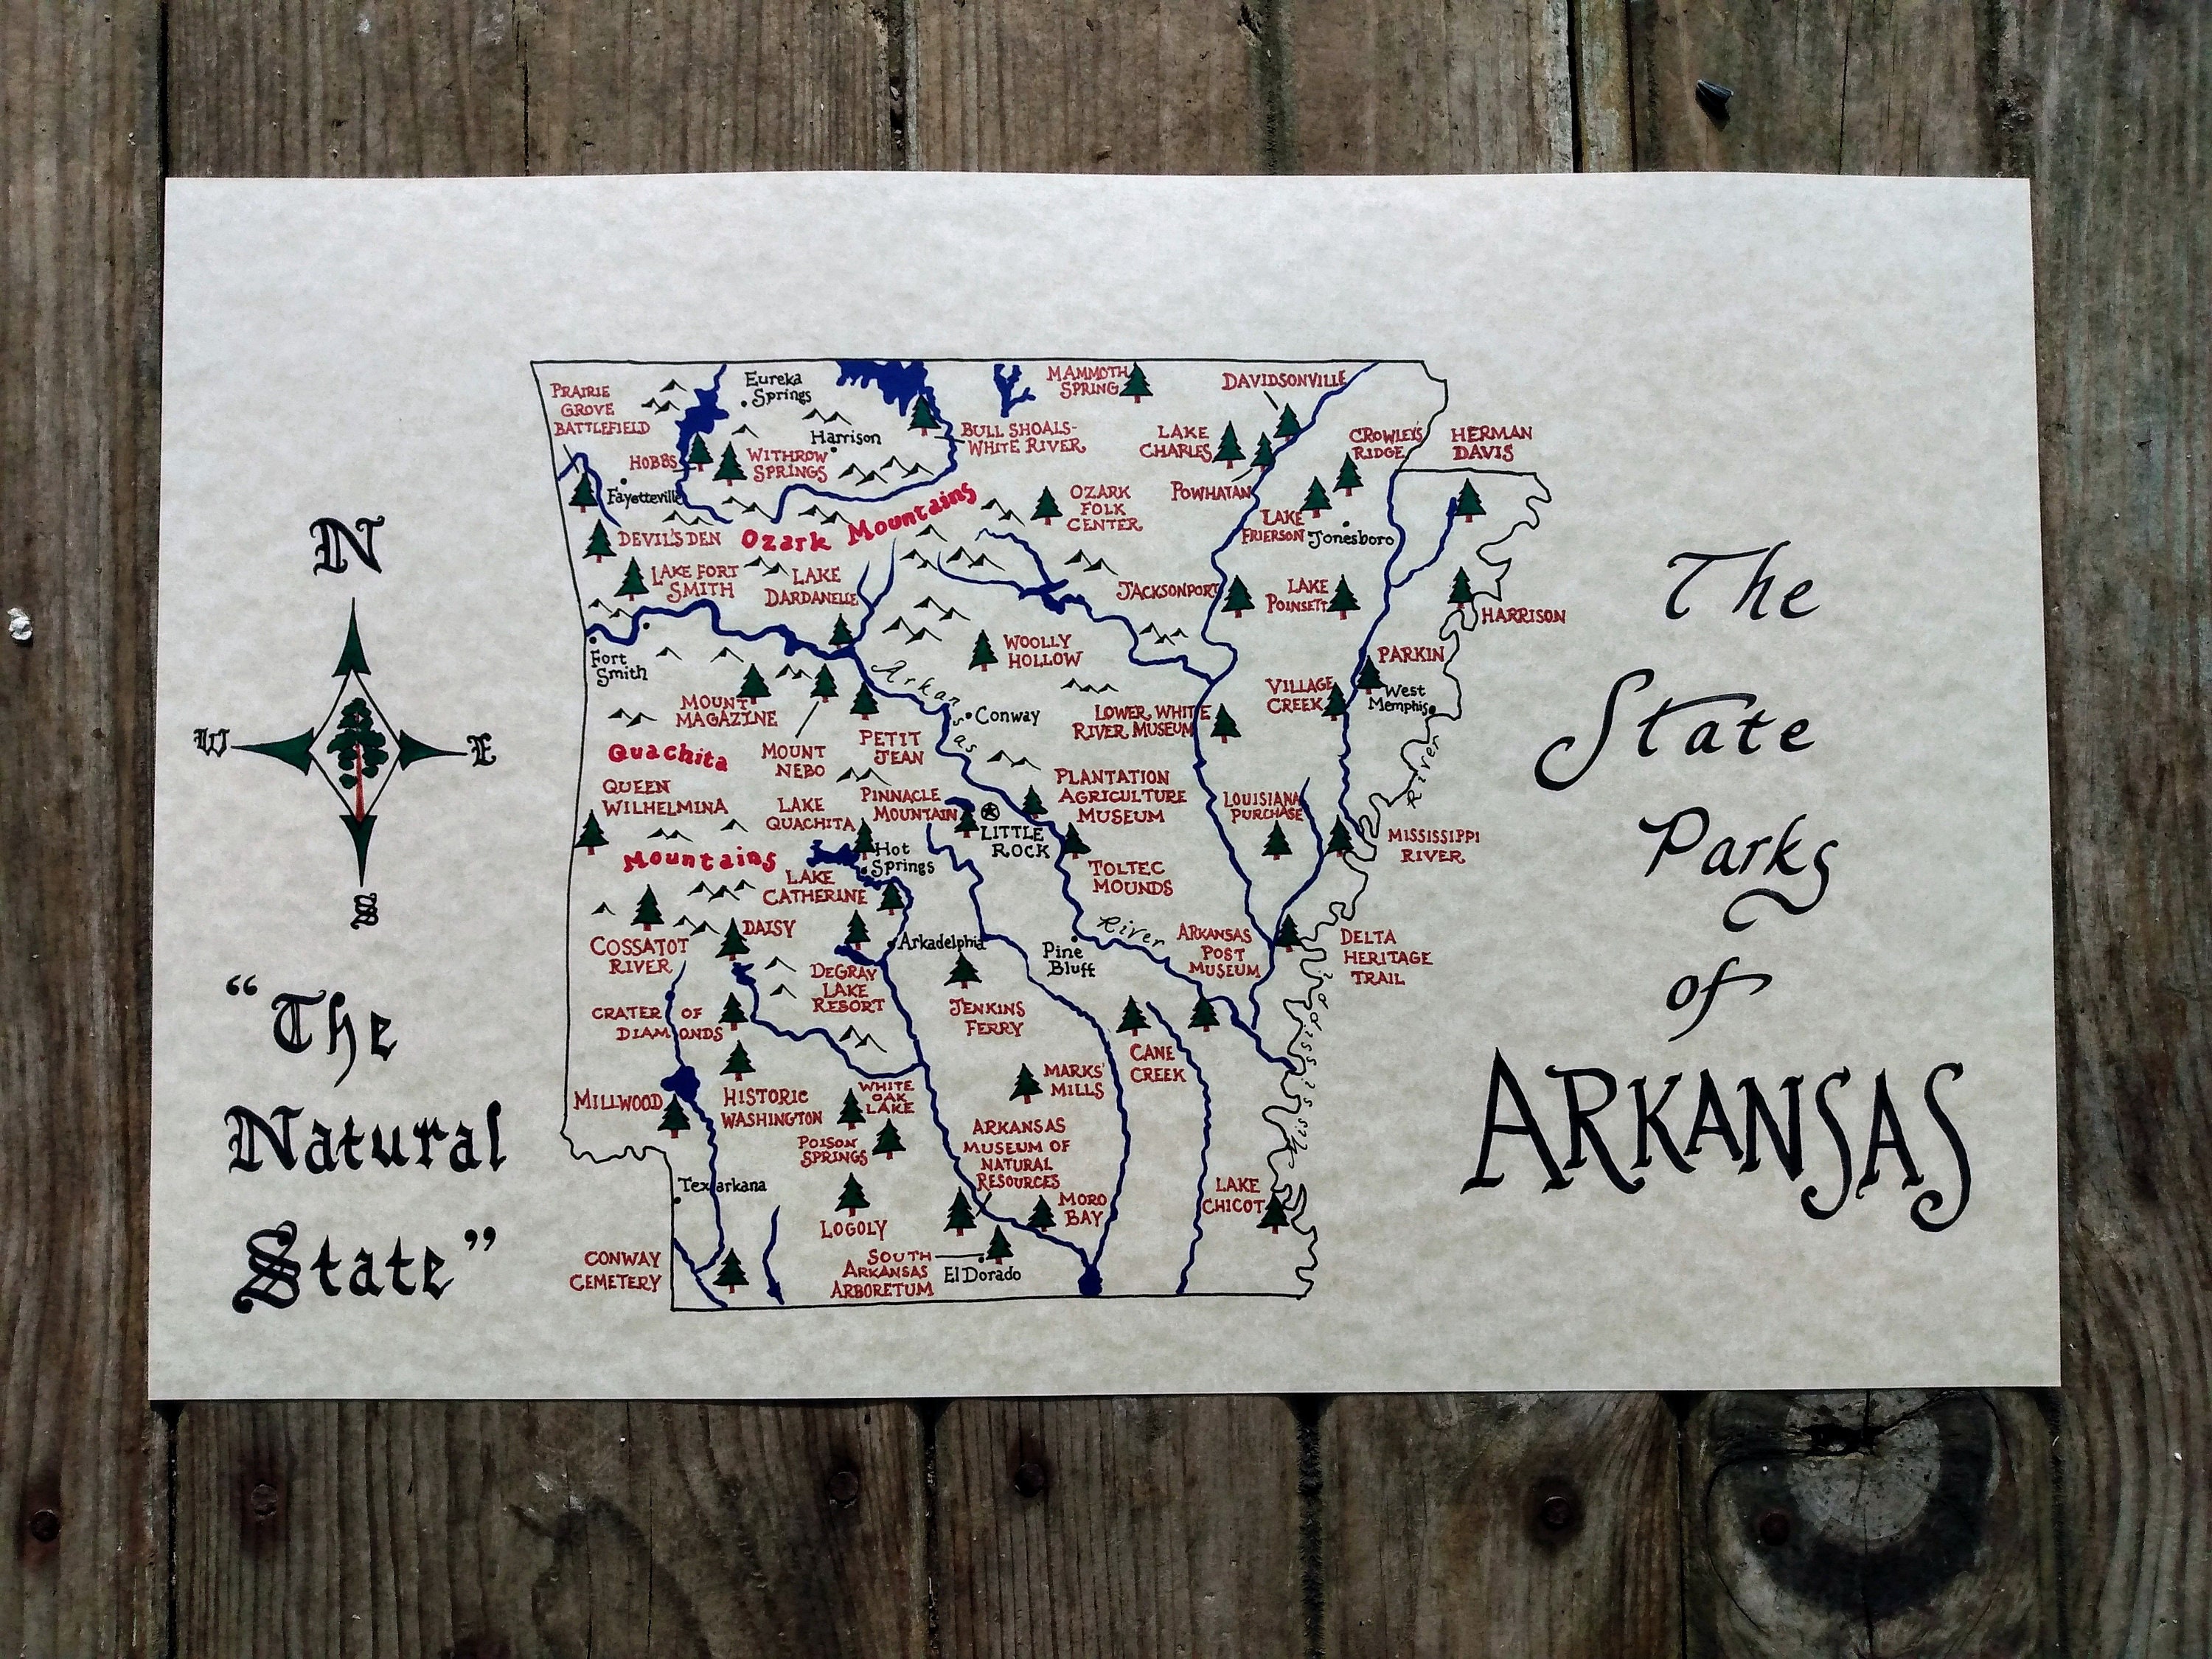 The
State
Parks
of
ARKANSAS
N
W
E
S
"The
Natural
State"
PRAIRIE
GROVE
BATTLEFIELD
Eureka
Springs
Harrison
HOBBS
WITHROW
SPRINGS
BULL SHOALS-
WHITE RIVER
MAMMOTH
SPRING
DAVIDSONVILLE
LAKE
CHARLES
POWHATAN
CROWLEY'S
RIDGE
HERMAN
DAVIS
Fayetteville
Ozark Mountains
OZARK
FOLK
CENTER
LAKE
FRIERSON
Jonesboro
DEVIL'S DEN
LAKE FORT
SMITH
LAKE
DARDANELLE
JACKSONPORT
LAKE
POINSETT
HARRISON
Fort
Smith
WOOLLY
HOLLOW
PARKIN
MOUNT
MAGAZINE
Arkansas
Conway
LOWER WHITE
RIVER MUSEUM
VILLAGE
CREEK
West
Memphis
MOUNT
NEBO
PETIT
JEAN
Quachita
River
QUEEN
WILHELMINA
LAKE
QUACHITA
PINNACLE
MOUNTAIN
LITTLE
ROCK
PLANTATION
AGRICULTURE
MUSEUM
LOUISIANA
PURCHASE
MISSISSIPPI
RIVER
Mountains
Hot
Springs
TOLTEC
MOUNDS
LAKE
CATHERINE
COSSATOT
RIVER
DAISY
Arkadelphia
Pine
Bluff
River
ARKANSAS
POST
MUSEUM
DELTA
HERITAGE
TRAIL
DEGRAY
LAKE
RESORT
JENKINS
FERRY
CRATER OF
DIAMONDS
CANE
CREEK
Mississippi
MILLWOOD
HISTORIC
WASHINGTON
WHITE
OAK
LAKE
MARKS'
MILLS
POISON
SPRINGS
ARKANSAS
MUSEUM OF
NATURAL
RESOURCES
Texarkana
LOGOLY
MORO
BAY
LAKE
CHICOT
CONWAY
CEMETERY
SOUTH
ARKANSAS
ARBORETUM
El Dorado